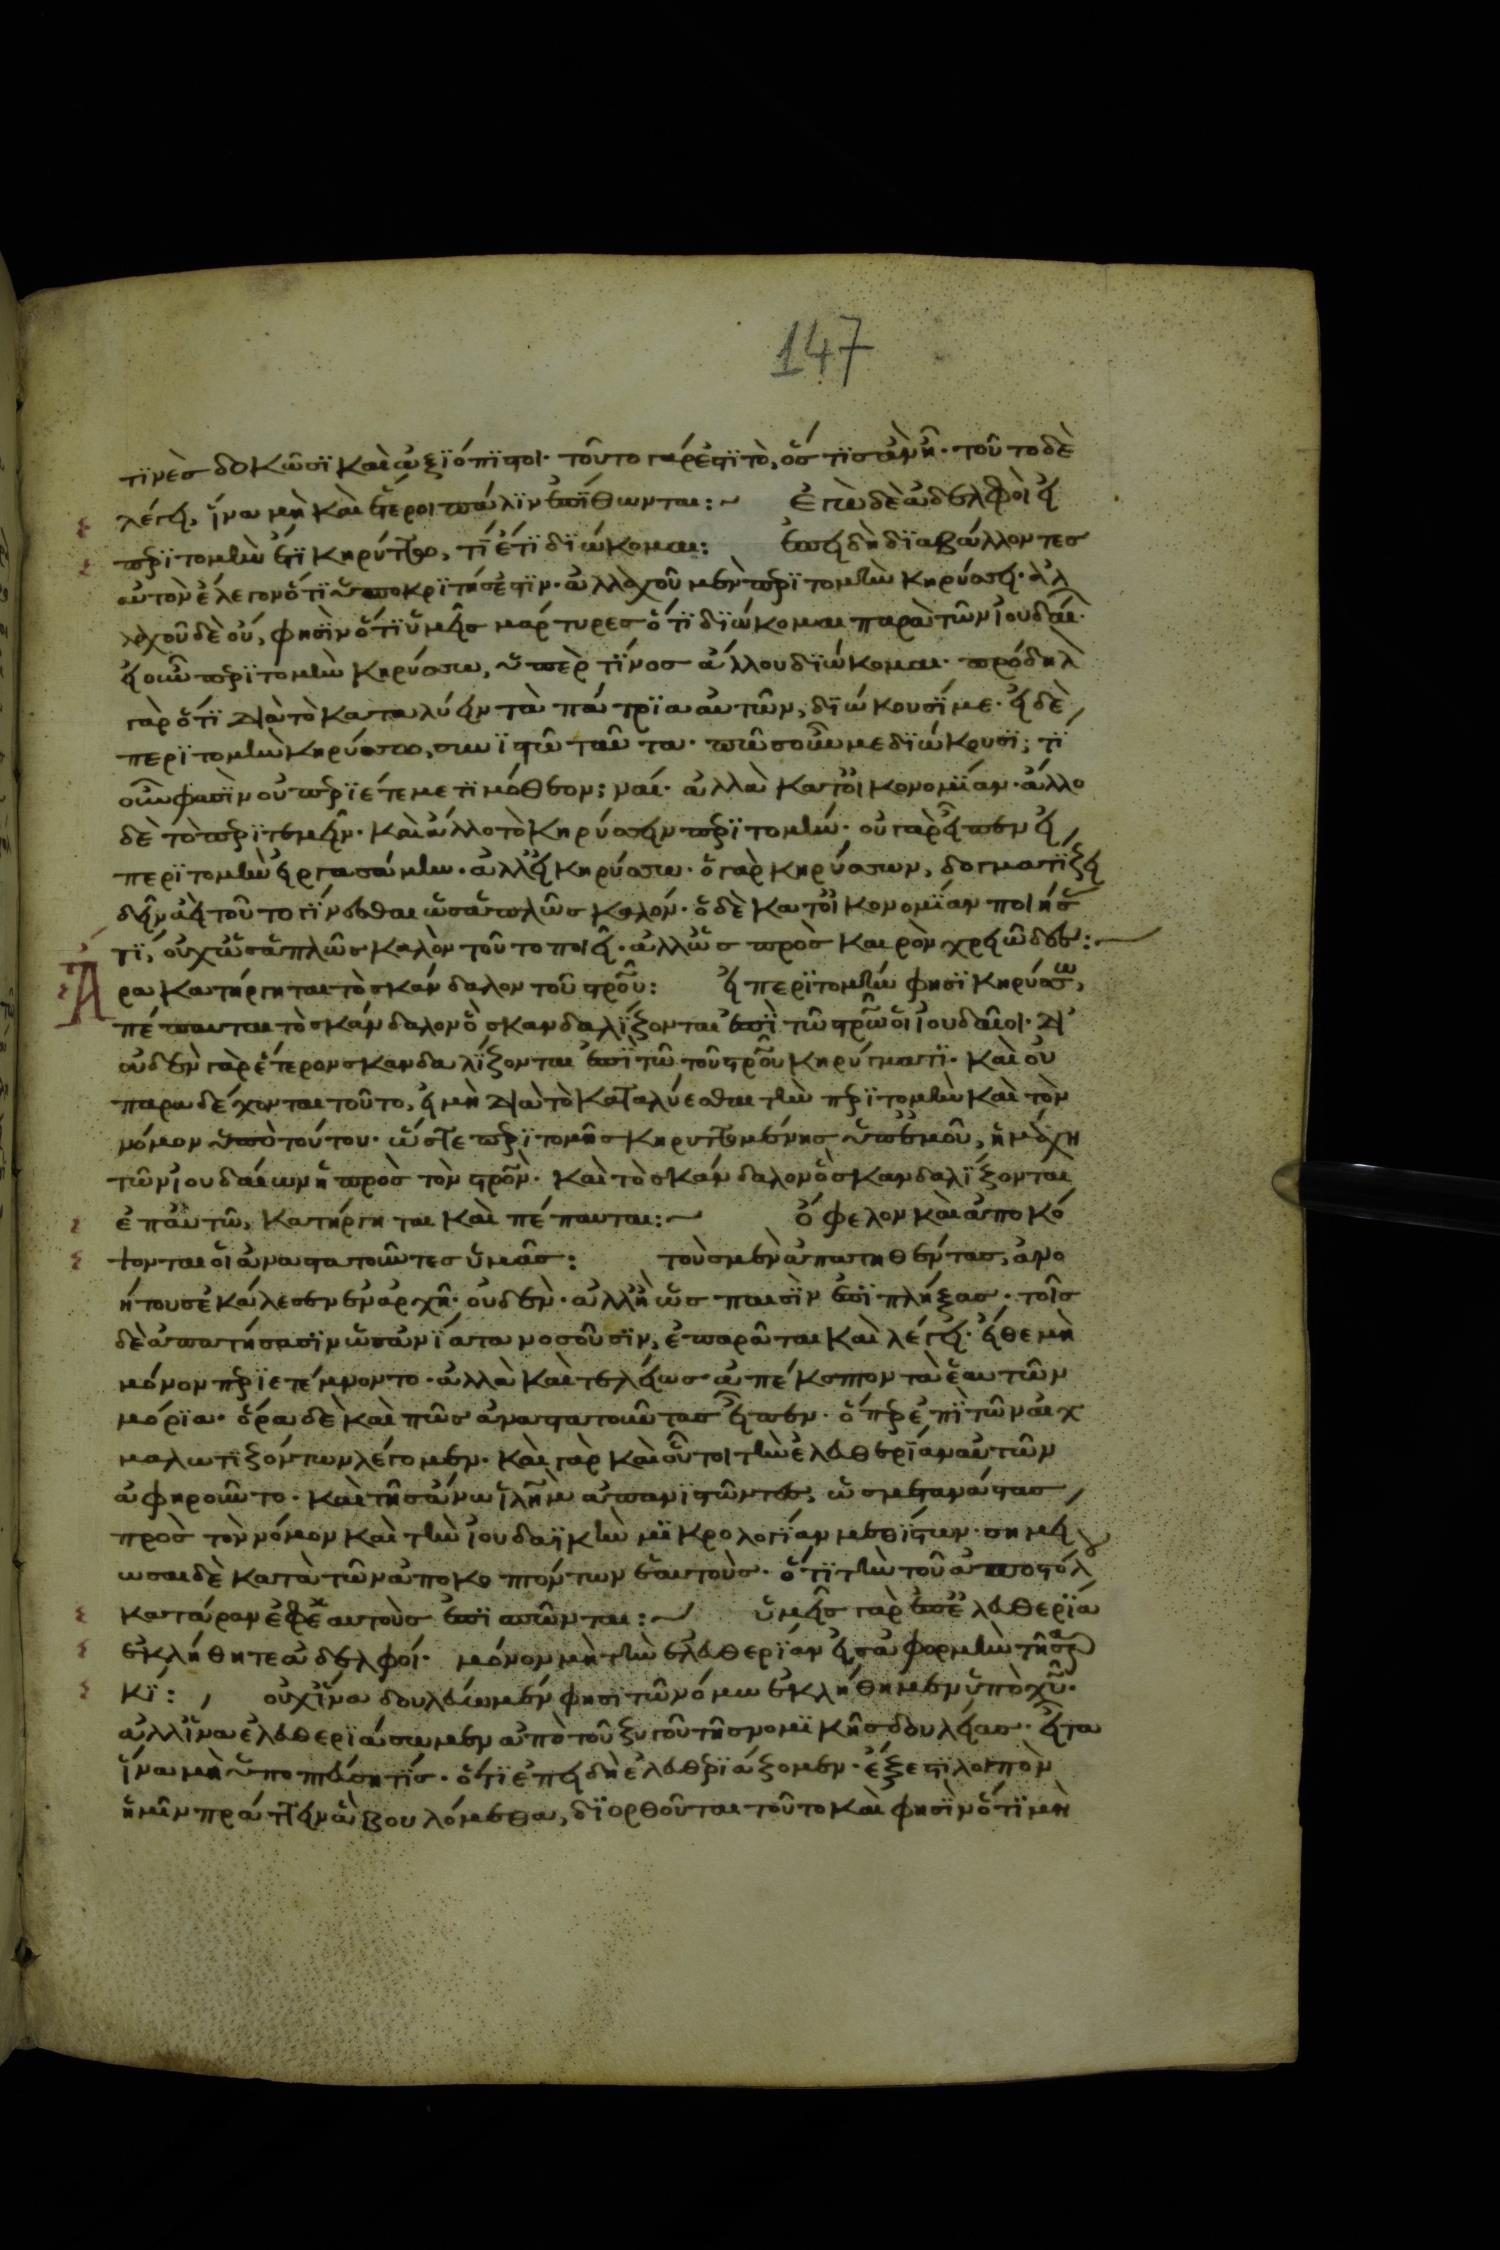 147
τινὲς δοκῶσι καὶ ἀξιόπιστοι· τοῦτο γάρ ἐστι τὸ, ὅστις ἂν ᾖ· τοῦτο δὲ
λέγει, ἵνα μὴ καὶ ἕτεροι πάλιν ἐπίθωνται:~ Ἐγὼ δὲ ἀδελφοὶ εἰ
περιτομὴν ἔτι κηρύττω, τί ἔτι διώκομαι: ἐπειδὴ διαβάλλοντες
αὐτὸν ἔλεγον ὅτι ὑποκριτής ἐστιν· ἀλλαχοῦ μὲν περιτομὴν κηρύσσει· ἀλ
λαχοῦ δὲ οὔ, φησὶν ὅτι ὑμεῖς μάρτυρες ὅτι διώκομαι παρὰ τῶν ἰουδαί·
εἰ οὖν περιτομὴν κηρύσσω, ὑπὲρ τίνος ἄλλου διώκομαι· πρόδηλ
γὰρ ὅτι διὰ τὸ καταλύειν τὰ πάτρια αὐτῶν, διώκουσί με· εἰ δὲ
περιτομὴν κηρύσσω, συνιστῶ ταῦτα· πῶς οὖν με διώκουσι; τί
οὖν φασὶν οὐ περιέτεμε τιμόθεον; ναί· ἀλλὰ κατ' οἰκονομίαν· ἄλλο
δὲ τὸ περιτεμεῖν· καὶ ἄλλο τὸ κηρύσσειν περιτομήν· οὐ γὰρ εἶπεν εἰ
περιτομὴν εἰργασάμην· ἀλλ' εἰ κηρύσσω· ὁ γὰρ κηρύσσων, δογματίζει
δεῖν ἀεὶ τοῦτο γίνεσθαι ὡς ἁπλῶς καλόν· ὁ δὲ κατ' οἰκονομίαν ποιήσ
τι, οὐχ ὡς ἁπλῶς καλὸν τοῦτο ποιεῖ· ἀλλ' ὡς πρὸς καιρὸν χρειῶδες:
Ἄρα κατήργηται τὸ σκάνδαλον τοῦ στροῦ: εἰ περιτομήν φησι κηρύσσω,
πέπαυται τὸ σκάνδαλον ὃ σκανδαλίζονται ἐπὶ τῶ στρῶ οἱ ἰουδαῖοι· δι'
οὐδὲν γὰρ ἕτερον σκανδαλίζονται ἐπὶ τῶ τοῦ στροῦ κηρύγματι· καὶ οὐ
παραδέχονται τοῦτο, εἰ μὴ διὰ τὸ καταλύεσθαι τὴν περιτομὴν καὶ τὸν
νόμον ὑπὸ τούτου· ὥστε περιτομῆς κηρυττομένης ὑπ' ἐμοῦ, ἡ μάχη
τῶν ἰουδαίων ἡ πρὸς τὸν στρὸν· καὶ τὸ σκάνδαλον ὃ σκανδαλίζονται
ἐπ' αὐτῶ, κατήργηται καὶ πέπαυται:~ ὄφελον καὶ ἀποκό
ψονται οἱ ἀναστατοῦντες ὑμᾶς: τοὺς μὲν ἀπατηθέντας, ἀνο
ήτους ἐκάλεσεν ἐν ἀρχῆ· οὐδὲν· ἀλλ' ἢ ὡς παισὶν ἐπιπλήξας· τοῖς
δὲ ἀπατήσασιν ὡς ἀνίατα νοσοῦσιν, ἐπαρᾶται καὶ λέγει· εἴθε μὴ
μόνον περιετέμνοντο· ἀλλὰ καὶ τελείως ἀπέκοπτον τὰ ἑαυτῶν
μόρια· ὅρα δὲ καὶ πῶς ἀναστατοῦντας εἶπεν· ὅπερ ἐπὶ τῶν αἰχ
μαλωτιζόντων λέγομεν· καὶ γὰρ καὶ οὗτοι τὴν ἐλευθερίαν αὐτῶν
ἀφηροῦντο· καὶ τῆς ἄνω ἰλὴμ ἀπανιστῶντες, ὡς μετανάστας
πρὸς τὸν νόμον καὶ τὴν ἰουδαϊκὴν μικρολογίαν μεθίστων· σημεί
ωσαι δὲ κατὰ τῶν ἀποκοπτόντων ἑαυτοὺς· ὅτι τὴν τοῦ ἀποστόλ
κατάραν ἐφ' ἑαυτοὺς ἐπισπῶνται:~ ὑμεῖς γὰρ ἐπ' ἐλευθερία
ἐκλήθητε ἀδελφοί· μόνον μὴ τὴν ἐλευθερίαν εἰς ἀφορμὴν τῆ σαρ
κί: , οὐχ ἵνα δουλεύωμέν φησι τῶ νόμω ἐκλήθημεν ὑπὸ χῦ·
ἀλλ' ἵνα ἐλευθεριάσωμεν ἀπὸ τοῦ ζυγοῦ τῆς νομικῆς δουλείας· εἶτα
ἵνα μὴ ὑποπτεύση τίς· ὅτι ἐπειδὴ ἐλευθεριάζομεν· ἔξεστι λοιπὸν
ἡμῖν πράττειν ἃ βουλόμεθα, διορθοῦται τοῦτο καὶ φησὶν ὅτι μὴ